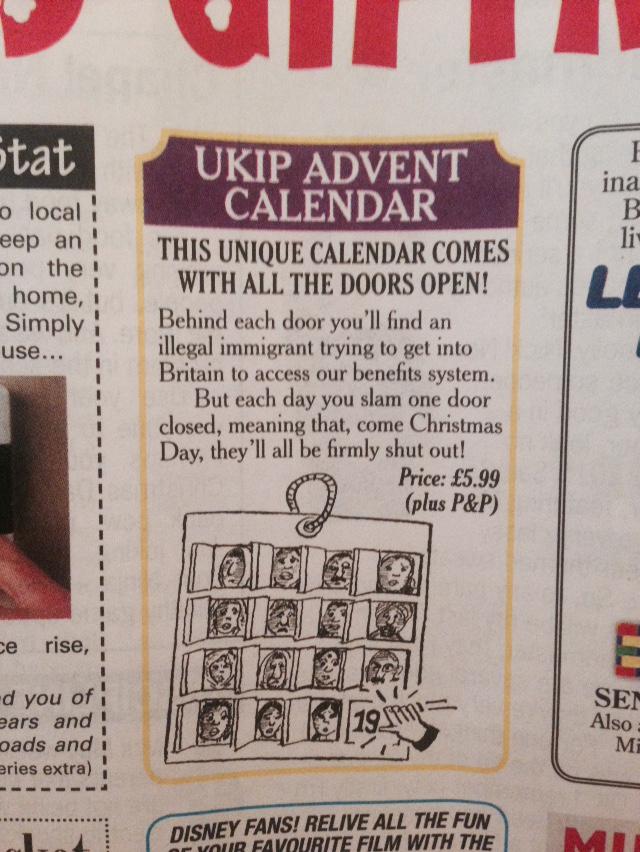 GIFT
UKIP ADVENT
CALENDAR
THIS UNIQUE CALENDAR COMES
WITH ALL THE DOORS OPEN!
Behind each door you'll find an
illegal immigrant trying to get into
Britain to access our benefits system.
But each day you slam one door
closed, meaning that, come Christmas
Day, they'll all be firmly shut out!
Price: £5.99
(plus P&P)
19
local
on the
home,
Simply
use...
rise,
you of
and
and
extra)
SEN
Also
DISNEY FANS! RELIVE ALL THE FUN
OF YOUR FAVOURITE FILM WITH THE